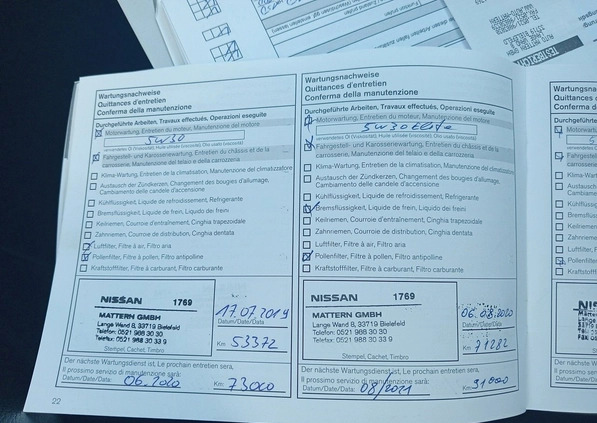 Wartungsnachweise
Quittances d'entretien
Conferma della manutenzione
Durchgeführte Arbeiten, Travaux effectués, Operazioni eseguite
Motorwartung, Entretien du moteur, Manutenzione del motore
5W30
verwendetes Öl (Viscosität), Huile utilisée (viscosité), Olio usato (viscosità)
Fahrgestell- und Karosseriewartung, Entretien du châssis et de la
carrosserie, Manutenzione del telaio e della carrozzeria
Klima-Wartung, Entretien de la climatisation, Manutenzione del climatizzatore
Austausch der Zündkerzen, Changement des bougies d'allumage,
Cambiamento delle candele d'accensione
Kühlflüssigkeit, Liquide de refroidissement, Refrigerante
Bremsflüssigkeit, Liquide de frein, Liquido dei freni
Keilriemen, Courroie d'entraînement, Cinghia trapezoidale
Zahnriemen, Courroie de distribution, Cinghia dentata
Luftfilter, Filtre à air, Filtro aria
Pollenfilter, Filtre à pollen, Filtro antipolline
Kraftstofffilter, Filtre à carburant, Filtro carburante
NISSAN 1769
MATTERN GMBH
Lange Wand 8, 33719 Bielefeld
Telefon: 0521 988 30 30
Telefax: 0521 988 30 33 9
Stempel, Cachet, Timbro
17.07.2019
Datum/Date/Data
Km 53372
Der nächste Wartungsdienst ist, Le prochain entretien sera,
Il prossimo servizio di manutenzione sarà:
Datum/Date/Data: 06.2020 Km: 73000
22
Wartungsnachweise
Quittances d'entretien
Conferma della manutenzione
Durchgeführte Arbeiten, Travaux effectués, Operazioni eseguite
Motorwartung, Entretien du moteur, Manutenzione del motore
5W30
verwendetes Öl (Viscosität), Huile utilisée (viscosité), Olio usato (viscosità)
Fahrgestell- und Karosseriewartung, Entretien du châssis et de la
carrosserie, Manutenzione del telaio e della carrozzeria
Klima-Wartung, Entretien de la climatisation, Manutenzione del climatizzatore
Austausch der Zündkerzen, Changement des bougies d'allumage,
Cambiamento delle candele d'accensione
Kühlflüssigkeit, Liquide de refroidissement, Refrigerante
Bremsflüssigkeit, Liquide de frein, Liquido dei freni
Keilriemen, Courroie d'entraînement, Cinghia trapezoidale
Zahnriemen, Courroie de distribution, Cinghia dentata
Luftfilter, Filtre à air, Filtro aria
Pollenfilter, Filtre à pollen, Filtro antipolline
Kraftstofffilter, Filtre à carburant, Filtro carburante
NISSAN 1769
MATTERN GMBH
Lange Wand 8, 33719 Bielefeld
Telefon: 0521 988 30 30
Telefax: 0521 988 30 33 9
Stempel, Cachet, Timbro
06.08.2020
Datum/Date/Data
Km 71282
Der nächste Wartungsdienst ist, Le prochain entretien sera,
Il prossimo servizio di manutenzione sarà:
Datum/Date/Data: 08/2021 Km: 91000